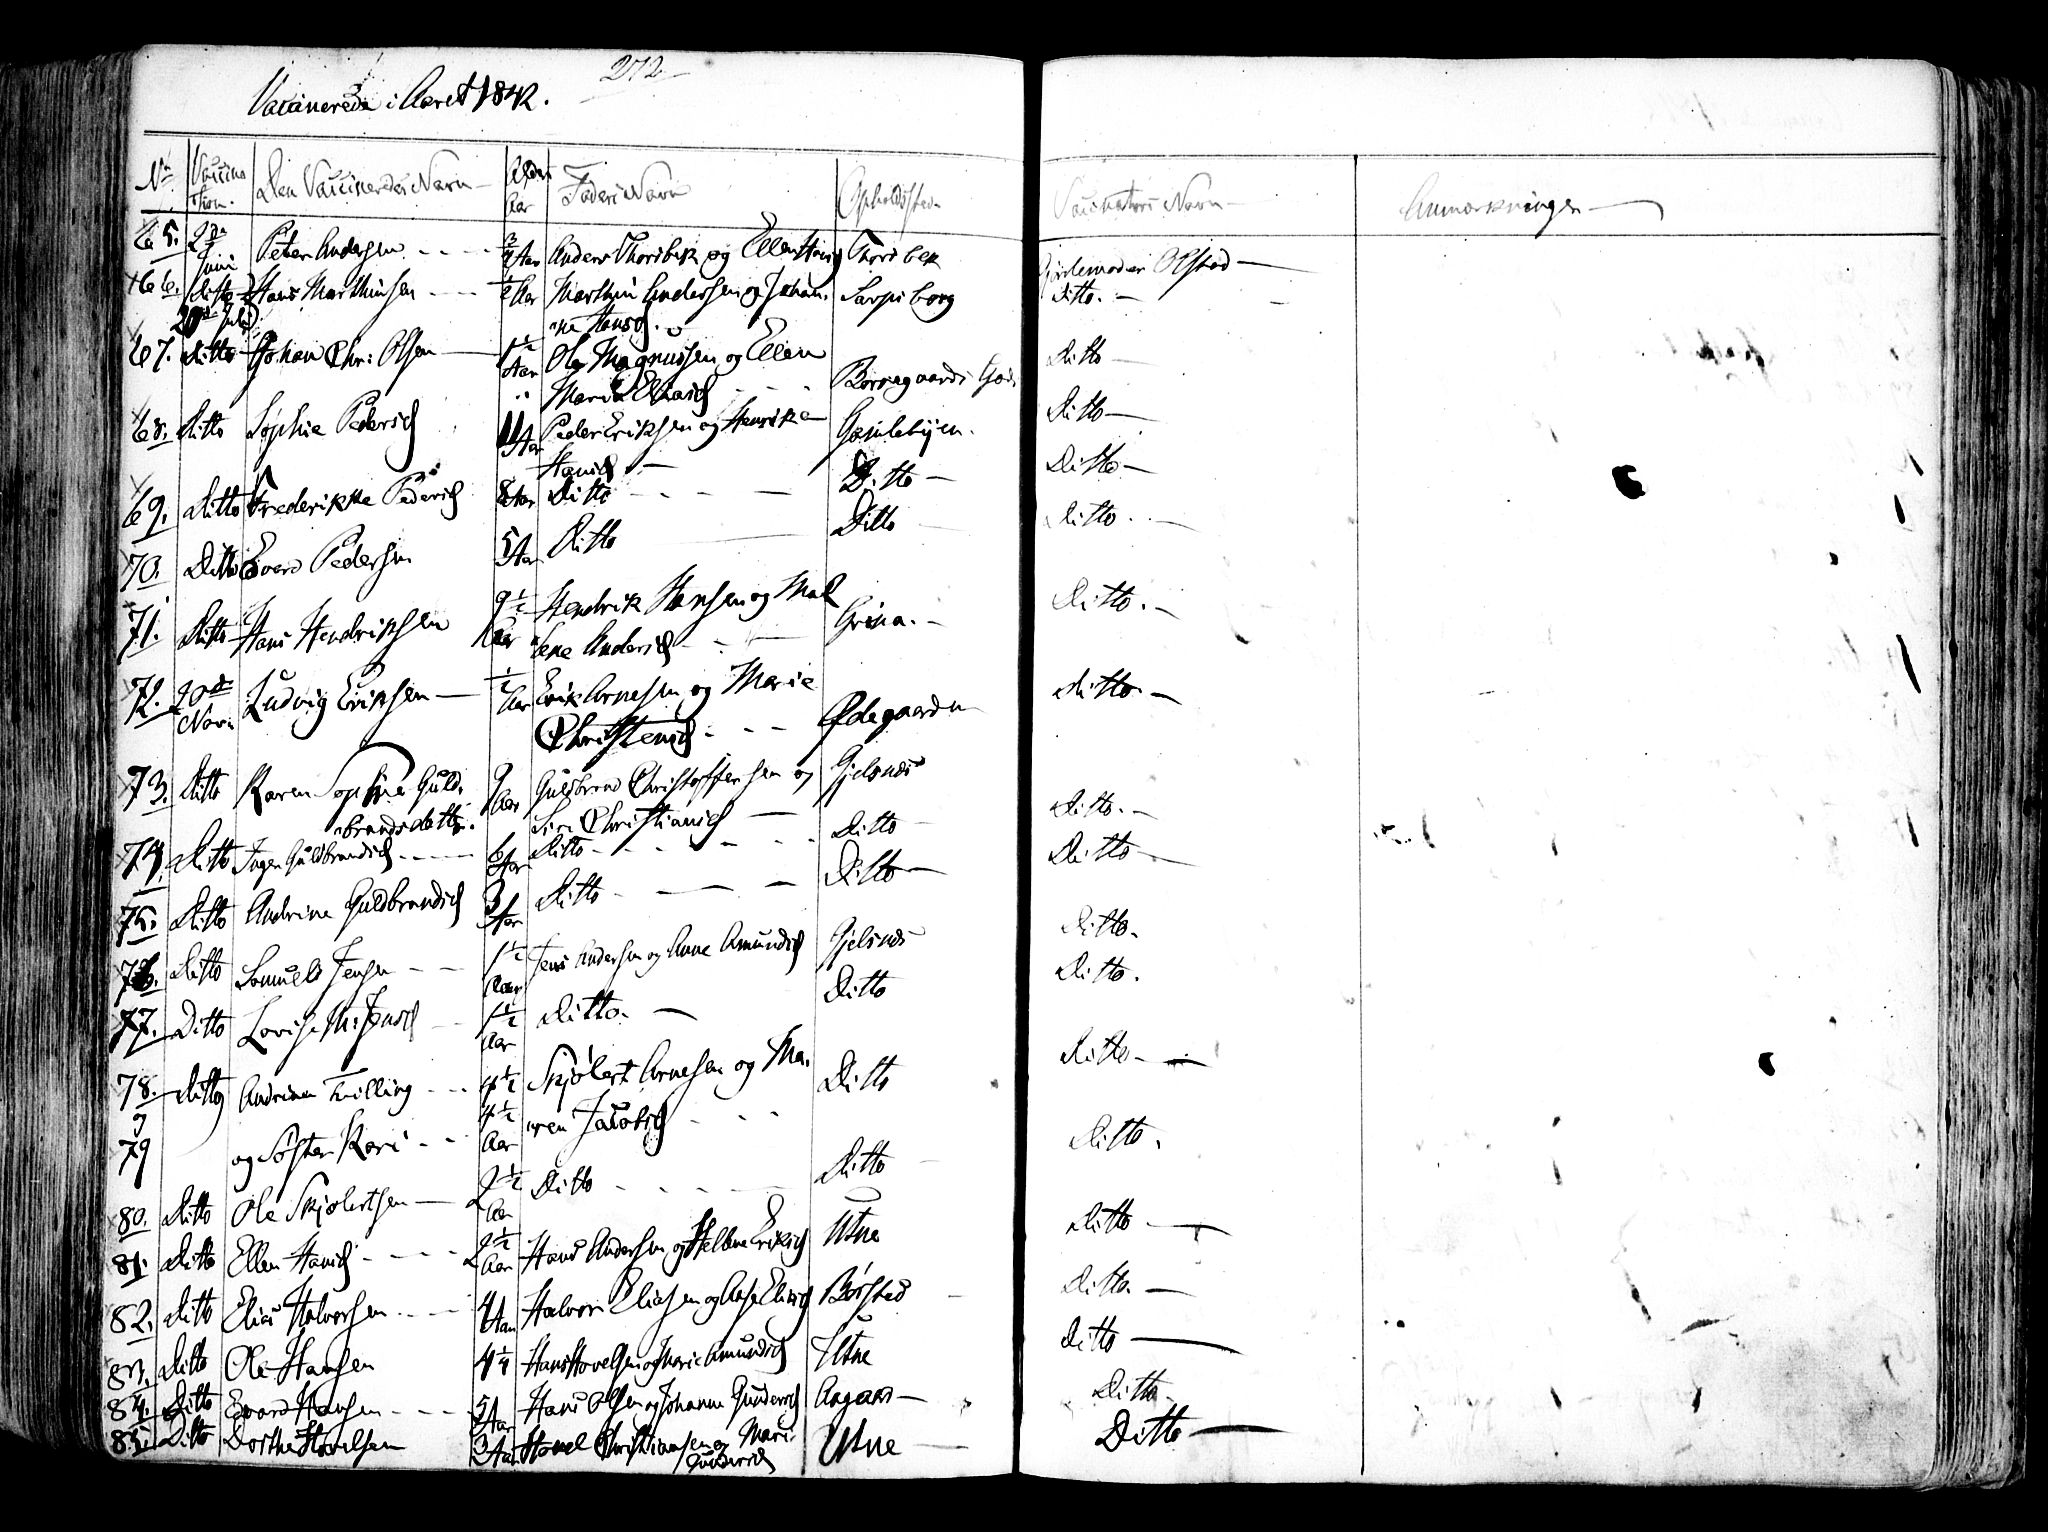 272
Vaccinerede i Aaret 1842.
No Vaccina Den Vaccineredes Navn Alder Faders Navn Opholdssted Vaccinators Navn Anmærkninger
tion. Aar
65. 2den Juni Peter Andersen 3/4 Aar Anders Thorsbek og Ellen Hansd Thorsbek Gjordemoder Olstad
66. ditto Hans Marthinsen 1/2 Aar Marthin Andersen og Johan- Sarpsborg Ditto.
20de Juli ne Hansd.
67. Ditto Johan Chr: Olsen 1 1/2 Aar Ole Magnussen og Ellen Ditto
Maria Eliasd Borregaards Gods
68. Ditto Sophie Pedersd 11 Aar Peder Eriksen og Henrikke Gamlebyen. Ditto
Hansd
69. Ditto Frederikke Pedersd 8 Aar Ditto Ditto Ditto
70. Ditto Evard Pedersen 5 Aar Ditto Ditto Ditto
71. Ditto Hans Hendriksen 9 1/2 Aar Hendrik Hansen og Mad Grina. Ditto.
lene Andersd
72. 20de Nov: Ludvig Eriksen 1/2 Aar Erik Arnesen og Marie Ødegaarden Ditto.
Christensd
73. Ditto Karen Sophie Guld- 9 Aar Guldbrand Christoffersen og Gjelsnæs Ditto.
brandsdatter. Siri Christiansd
74. Ditto Inger Guldbrandsd 6 Aar Ditto Ditto Ditto
75. Ditto Andrine Guldbrandsd 3 Aar Ditto Ditto Ditto.
76. Ditto Samuel Jensen 1 1/2 Aar Jens Andersen og Anne Amundsd Gjelsnæs Ditto.
77. Ditto Lovise M: Jensd 1 1/2 Aar Ditto Ditto Ditto
78. Ditto Andrinen Tvilling 4 1/2 Skjølert Arnesen og Ma- Ditto Ditto.
79 og Søster Kari 4 1/2 Aar ren Jacobsd
80. Ditto Ole Skjølertsen 2 1/2 Aar Ditto Ditto Ditto
81. Ditto Ellen Hansd 2 1/2 Aar Hans Andersen og Helene Eriksd Utne Ditto.
82. Ditto Elias Halvorsen 4 Aar Halvor Eliasen og Aase Eliasd Børstad Ditto
83. Ditto Ole Hansen 4 1/4 Hans Hovelsen og Marie Amundsd Utne Ditto
84. Ditto Evard Hansen 5 Aar Hans Olsen og Johanne Gundersd Aagaard Ditto
85. Ditto Dorthe Hovelsen 3 Aar Hovel Christiansen og Mari- Utne
Gundersd